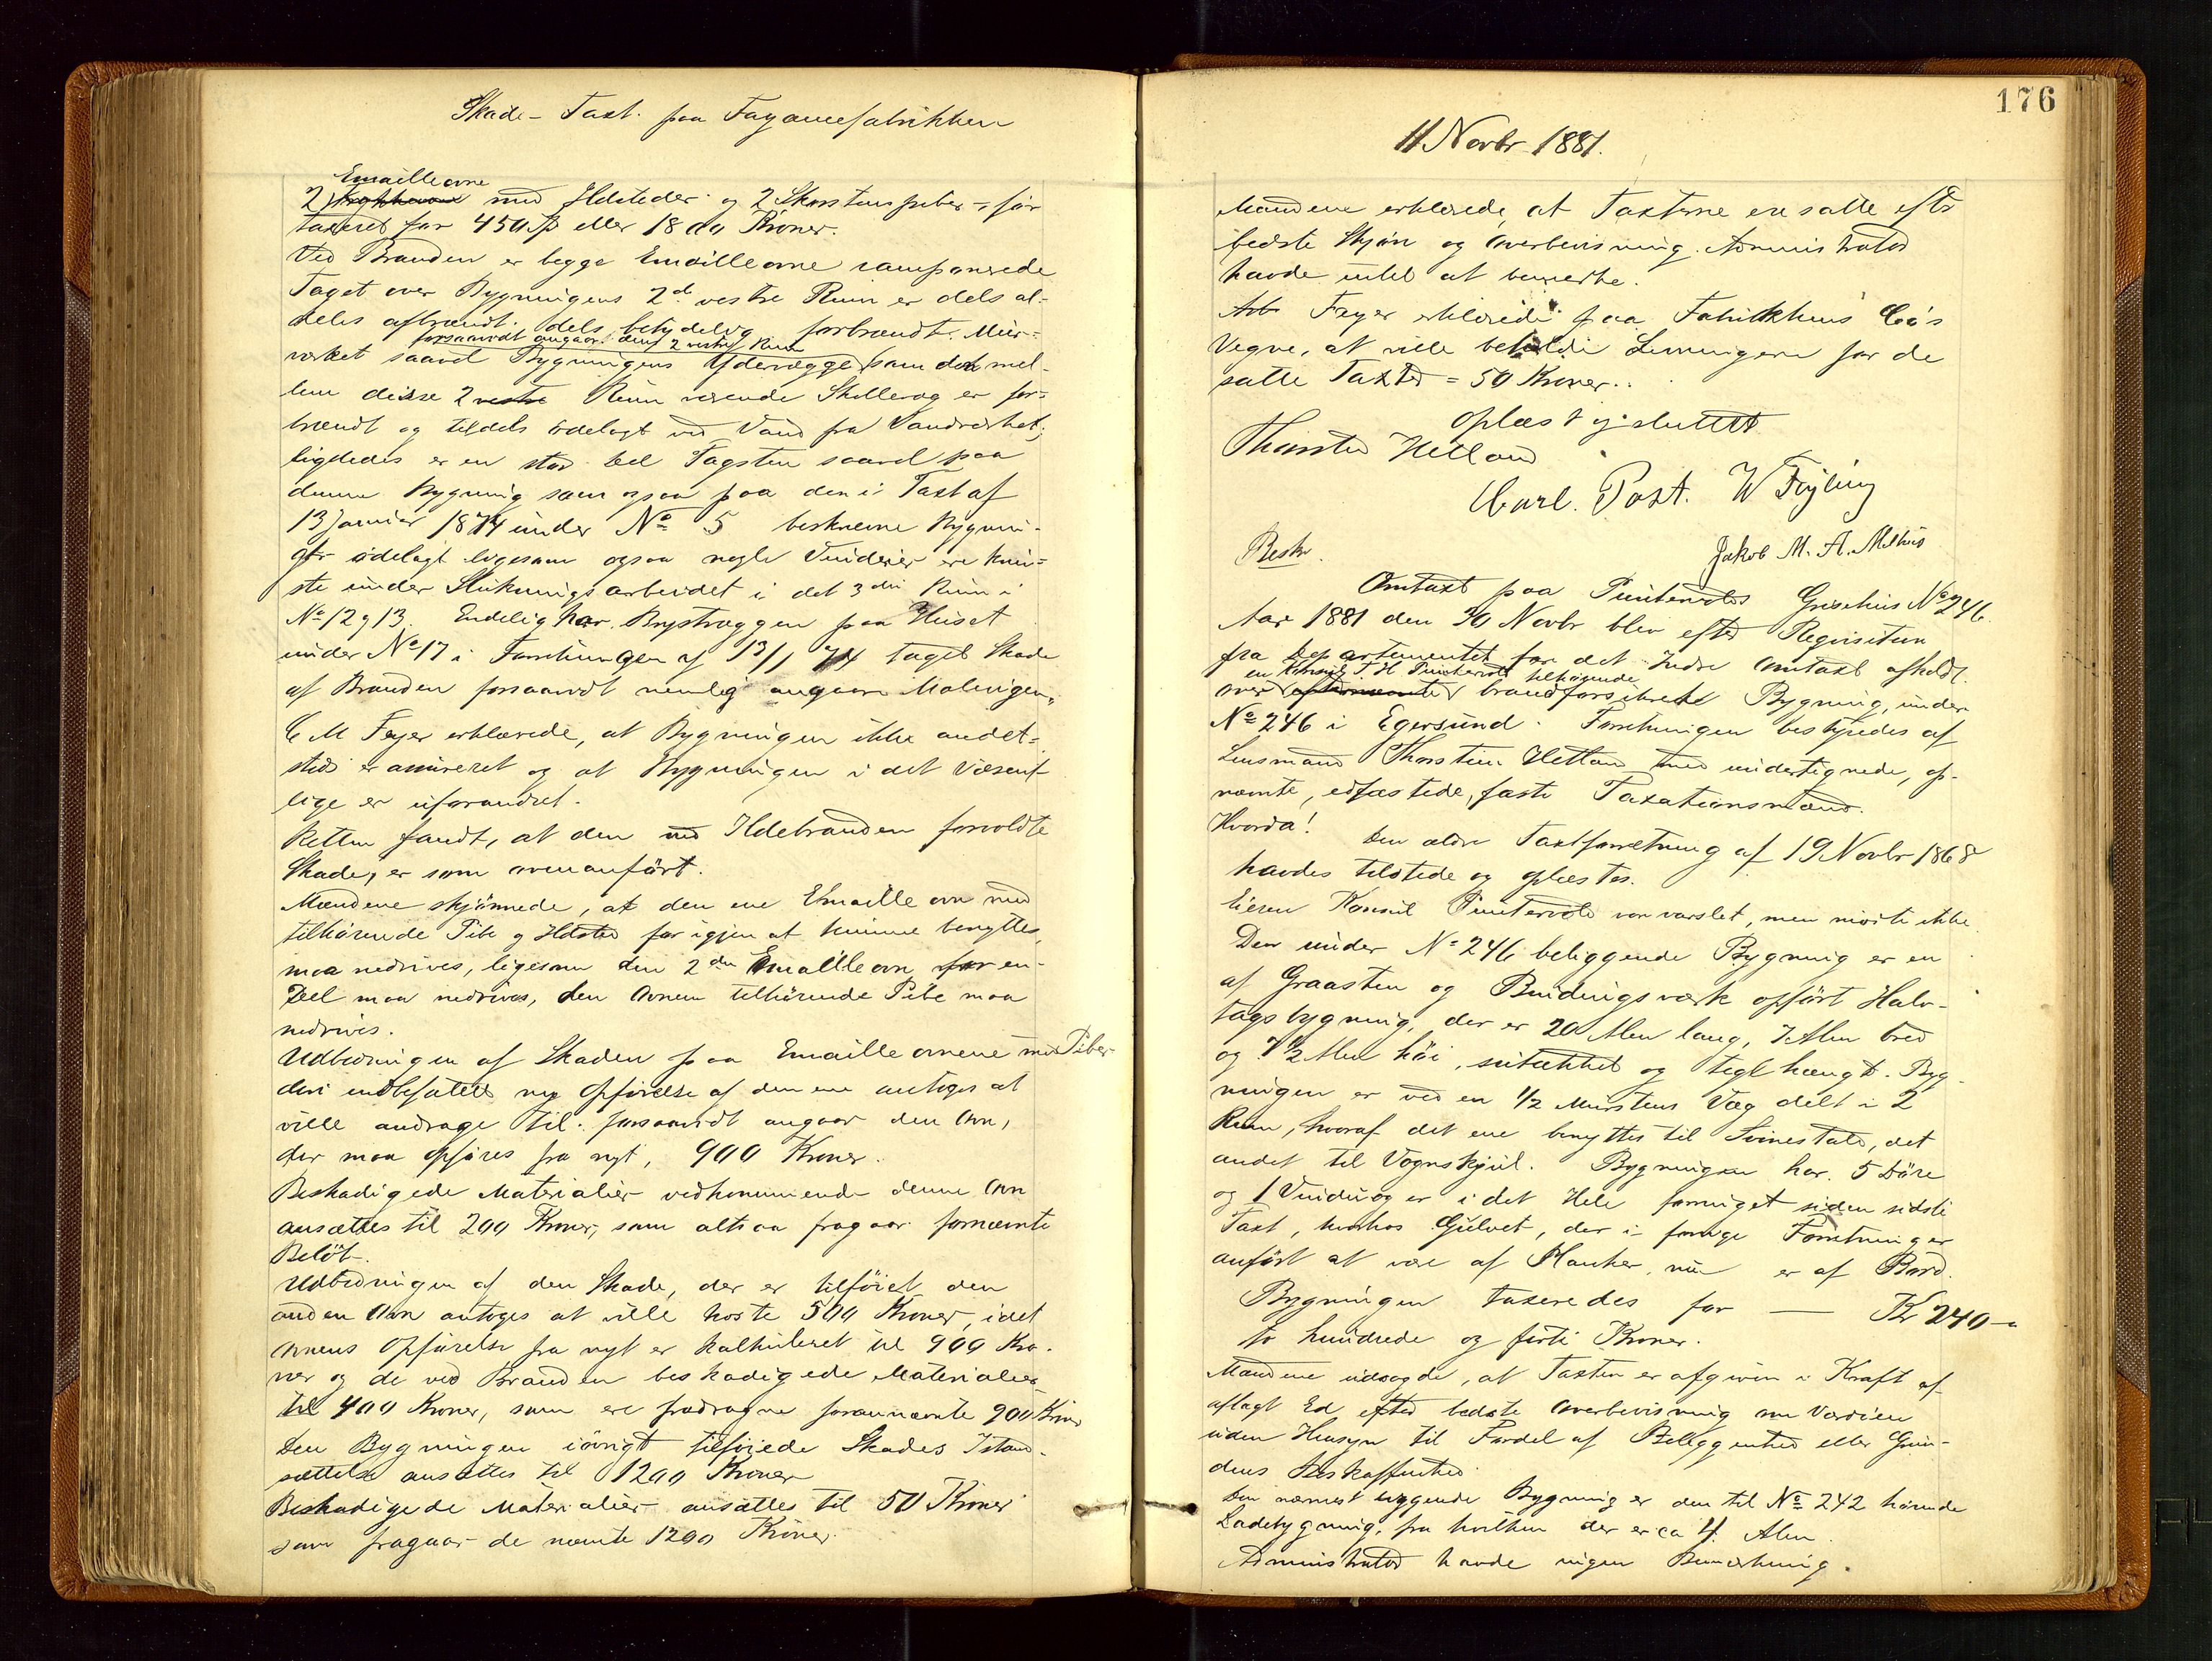 Skade-Taxt. paa Fayancefabrikken
Emailleovne
2 med Ildsteder og 2 Skorstenspiber – för
taxeret for 450 Sp eller 1800 Kroner.
Ved Branden er begge Emailleovne ramponerede
Taget over Bygningens 2de vestre Rum er dels al-
deles afbrændt dels betydelig forbrændt. Mur-
forsaavidt angaar dens 2 vestre Rum
værket saavel Bygningens Ydervægge som den mel-
lem disse 2 vestre Rum værende Skillevæg er for-
brændt og tildels ödelagt ved Vand fra Vandværket;
ligeledes er en stor Del Tagsten saavel paa
denne Bygning som ogsaa paa den i Taxt af
13 Januar 1874 under No 5 beskrevne Bygnin-
ger ödelagt ligesom ogsaa nogle Vinduer ere knu-
ste under Slukningsarbeidet i det 3die Rum i
No 12 og 13. Endelig har Brystvæggen paa Huset
under No 17 i Forretningen af 13/1 74 taget Skade
af Branden forsaavidt nemlig angaar Malingen.
C M Feyer erklærede, at Bygningen ikke andet-
steds er assureret og at Bygningen i det Væsent-
lige er uforandret.
Retten fandt, at den ved Ildebranden forvoldte
Skade, er som ovenanført.
Mændene skjönnede, at den ene Emailleovn med
tilhörende Pibe og Ildsted for igjen at kunne benyttes,
maa nedrives, ligesom den 2den Emailleovn for en
Deel maa nedrives, den Ovnen tilhörende Pibe maa
nedrives.
Udbedringen af Skaden paa Emailleovnene med Piber
deri indbefattet ny Opførelse af den ene antoges at
ville andrage til: forsaavidt angaar den Ovn,
der maa opføres fra nyt, 900 Kroner.
Beskadigede Materialier vedkommende denne Ovn
ansættes til 200 Kroner, som altsaa fragaar fornævnte
Belöb.
Udbedringen af den Skade, der er tilföiet den
anden Ovn antoges at ville koste 500 Kroner, idet
Ovnens Opførelse fra nyt er kalkuleret til 900 Kro-
ner og de ved Branden beskadigede Materialier
til 400 Kroner, som ere fradragne forannævnte 900 Kroner
Den Bygningen iövrigt tilföiede Skades Istand-
sættelse ansættes til 1200 Kroner
Beskadigede Materialier ansættes til 50 Kroner
som fragaar de nævnte 1200 Kroner.
176
11 Novbr 1881.
Mændene erklærede, at Taxterne ere satte efter
bedste Skjön og Overbevisning. Administrator
havde intet at bemærke.
Feyer erklærede paa Fabrikkens Co's
Vegne, at ville beholde Levningerne for de
satte Taxter = 50 Kroner.
Oplæst og sluttet
Thorsten Hetland
Carl. Post. W Fojling
Jakob M. A. Melhus
Beskr.
Omtaxt paa Puntervolds Grisehus No 246.
Aar 1881 den 30 Novbr blev efter Requisition
fra Departementet for det Indre Omtaxt afholdt
en Konsul T. H Puntervold tilhörende
over brandforsikrede Bygning, under
No 246 i Egersund. Forretningen bestyredes af
Lensmand Thorstein Hetland med undertegnede, op-
nævnte, edfæstede, faste Taxationsmænd.
Hvorda!
Den ældre Taxtforretning af 19 Novbr 1868
havdes tilstede og oplæstes.
Eieren Konsul Puntervold var varslet, men mödte ikke.
Den under No 246 beliggende Bygning er en
af Graasten og Bindingsværk opfört Halv-
tagsbygning, der er 20 Alen lang, 7 Alen bred
og 7 1/2 Alen höi, sutækket og teglhængt. Byg-
ningen er ved en 1/2 Murstens Væg delt i 2
Rum, hvoraf det ene benyttes til Svinestald, det
andet til Vognskjul. Bygningen har 5 Döre
og 1 Vindu og er i det Hele forringet siden sidste
Taxt, hvorhos Gulvet, der i forrige Forretning er
anfört at være af Planker, nu er af Bord.
Bygningen taxeredes for — Kr 240-"
to hundrede og förti Kroner.
Mændene udsagde, at Taxten er afgiven i Kraft af
aflagt Ed efter bedste Overbevisning om Værdien
uden Hensyn til Fordel af Beliggenhed eller Grun-
dens Beskaffenhed.
Den nærmest liggende Bygning er den til No 242 hörende
Ladebygning, fra hvilken der er ca 4 Alen.
Administrator havde ingen Bemærkning.